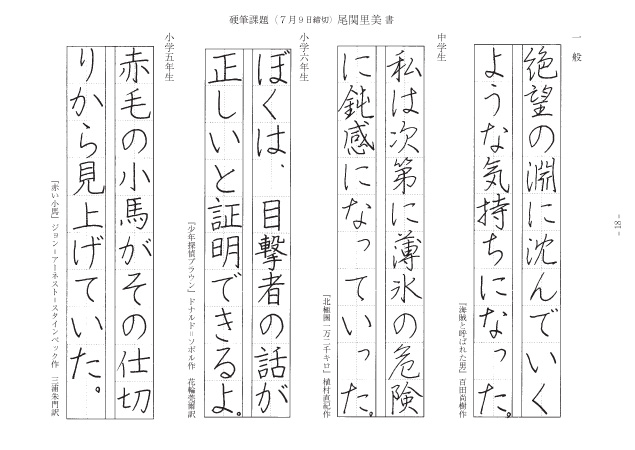 硬筆課題（7月9日締切）尾関里美 書
一般
絶望の淵に沈んでいく
ような気持ちになった。
『海賊と呼ばれた男』百田尚樹作
中学生
私は次第に薄氷の危険
に鈍感になっていった。
『北極圏一万二千キロ』植村直己作
小学六年生
ぼくは、目撃者の話が
正しいと証明できるよ。
『少年探偵ブラウン』ドナルド=ソボル作 花輪莞爾訳
小学五年生
赤毛の小馬がその仕切
りから見上げていた。
『赤い小馬』ジョン=アーネスト=スタインベック作 三浦朱門訳
- 18 -